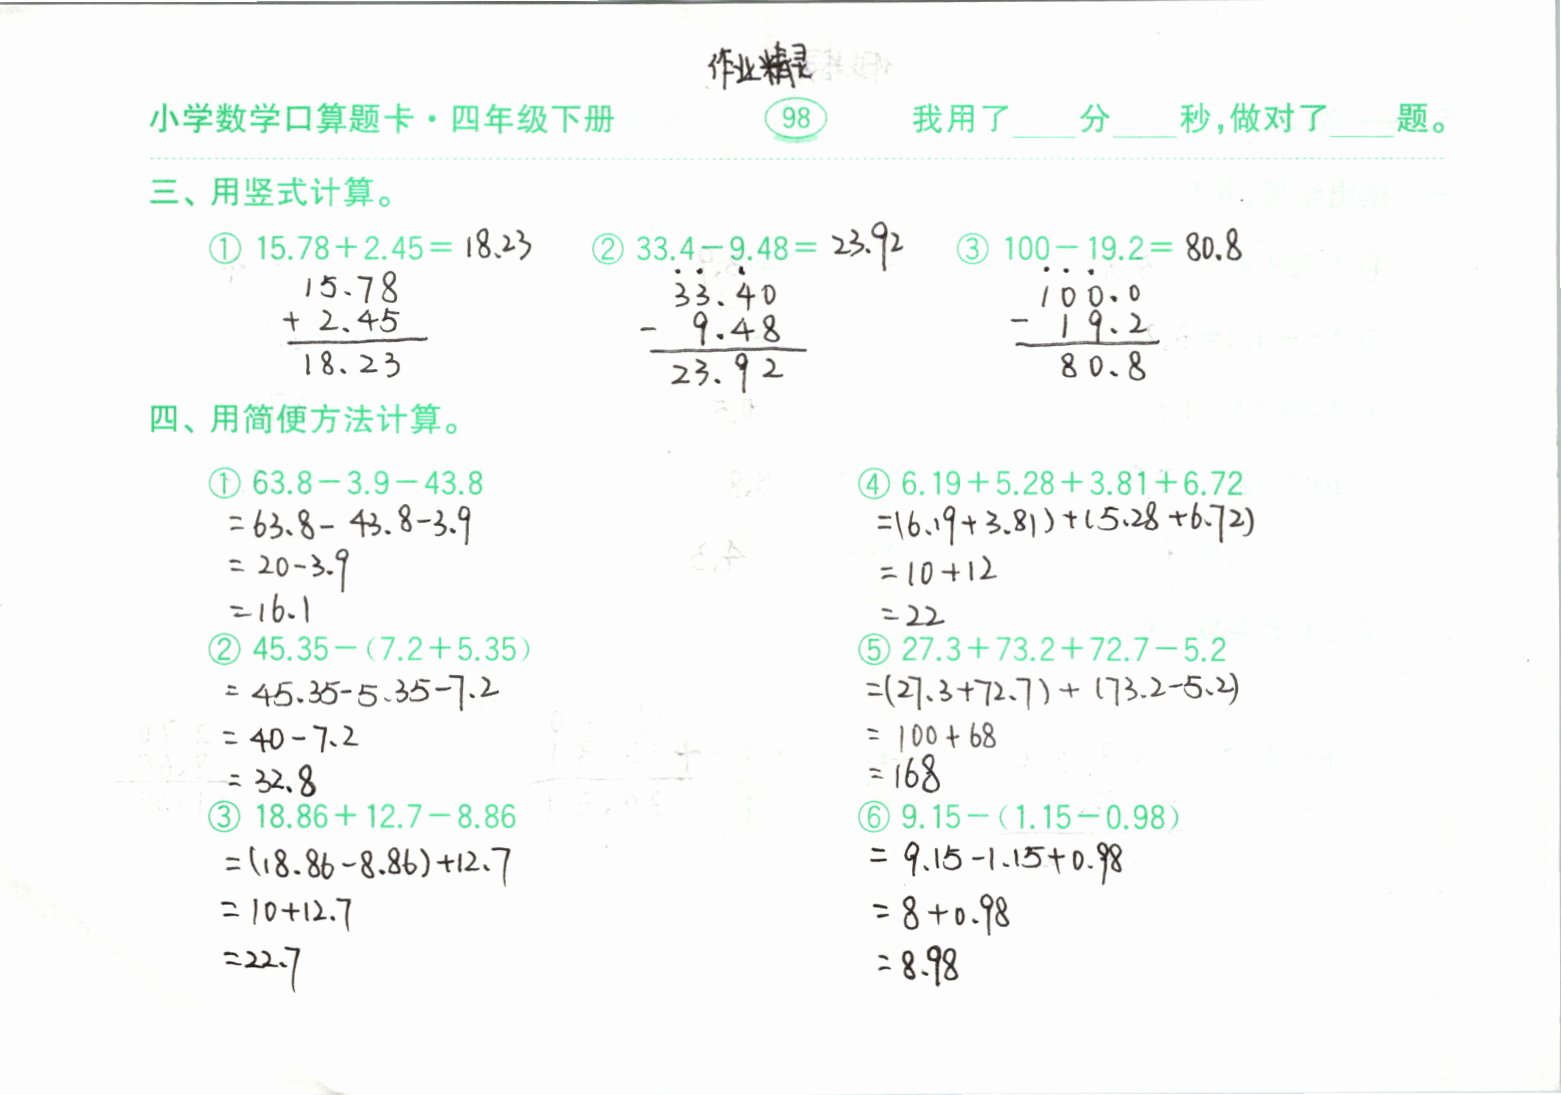 作业精灵
小学数学口算题卡·四年级下册 98 我用了____分____秒,做对了____题。
三、用竖式计算。
① 15.78+2.45= 18.23 ② 33.4-9.48= 23.92 ③ 100-19.2= 80.8
15.78 33.40 100.0
+ 2.45 - 9.48 - 19.2
18.23 23.92 80.8
四、用简便方法计算。
① 63.8-3.9-43.8
=63.8-43.8-3.9
=20-3.9
=16.1
② 45.35-(7.2+5.35)
=45.35-5.35-7.2
=40-7.2
=32.8
③ 18.86+12.7-8.86
=(18.86-8.86)+12.7
=10+12.7
=22.7
④ 6.19+5.28+3.81+6.72
=(6.19+3.81)+(5.28+6.72)
=10+12
=22
⑤ 27.3+73.2+72.7-5.2
=(27.3+72.7)+(73.2-5.2)
=100+68
=168
⑥ 9.15-(1.15-0.98)
=9.15-1.15+0.98
=8+0.98
=8.98